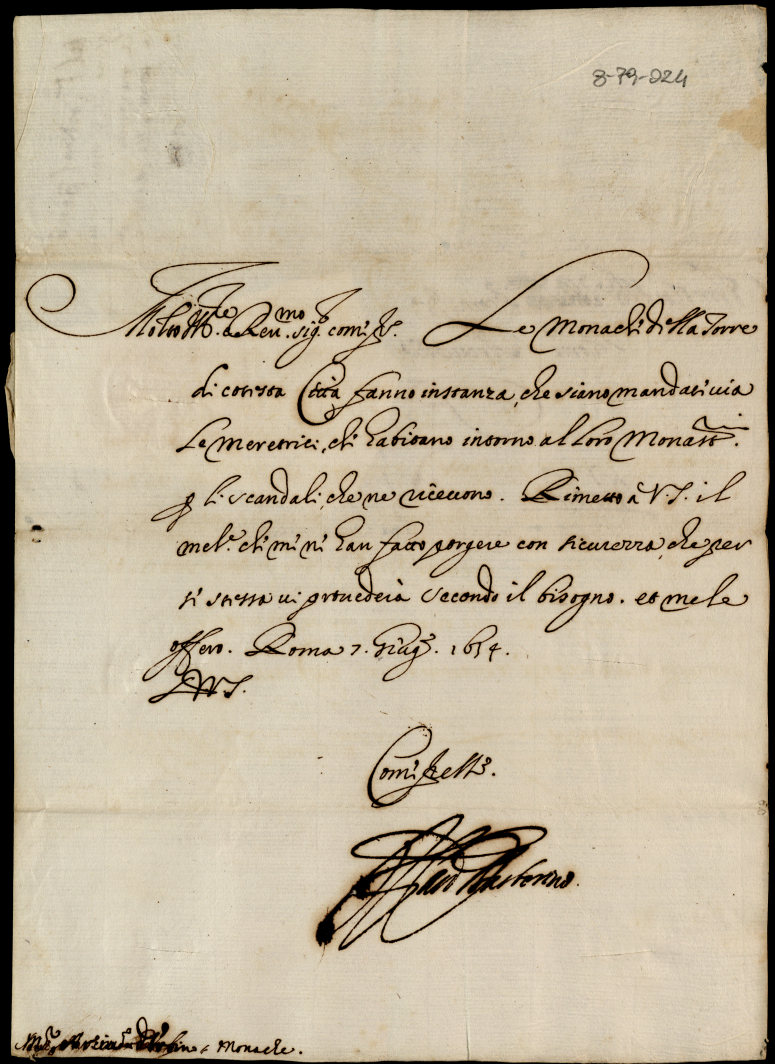 8-79-024
Molto Ill.re e Reu.mo Sig. come fr. Le Monache della Torre
di cotesta Città fanno instanza, che siano mandati uia
Le meretrici, che habitano intorno al Loro Monast.
p li scandali, che ne riceuono. Rimetto à V.S. il
mel. che mi ni han fatto porgere con sicurezza, che per
se stessa ui prouederà secondo il bisogno. et me le
offero. Roma 7. Giug. 1654.
D V.S.
Come fr.ello
Barberino
Monache.